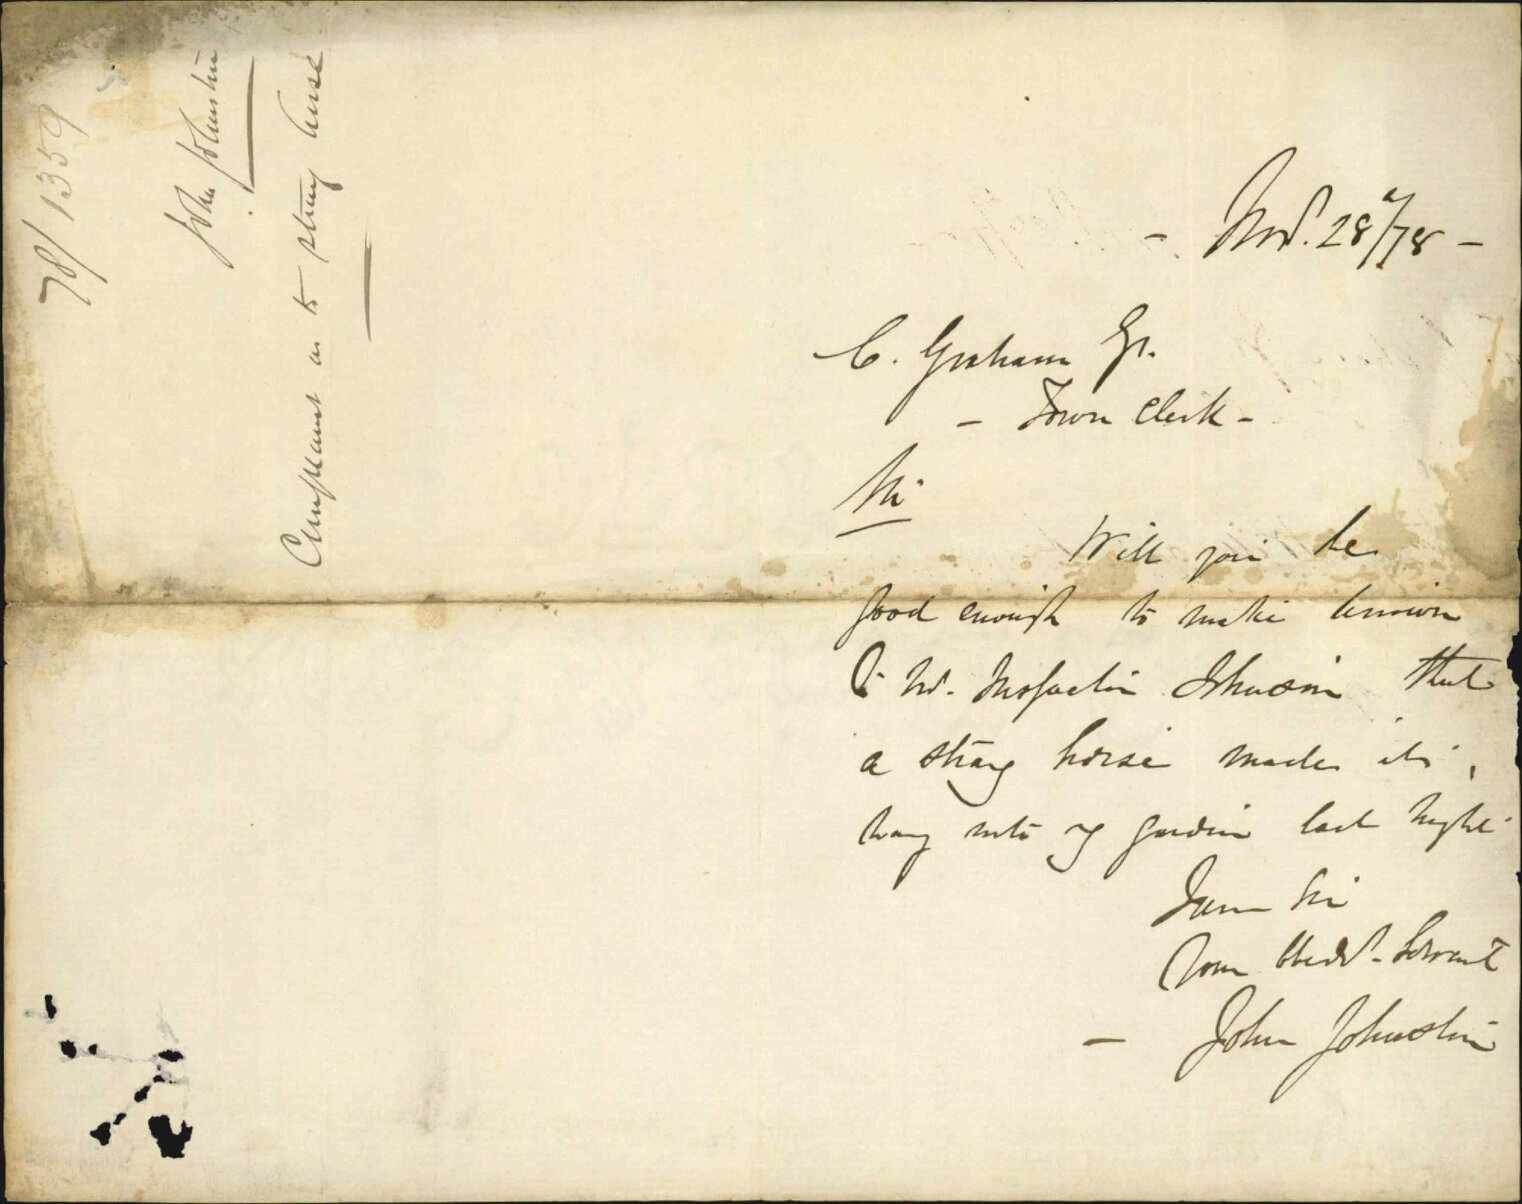 78/1359
John Johnston
Complaint as to stray horse
- Nov. 28/78 -
C. Graham Esq.
- Town Clerk -
Sir
Will you be
good enough to make known
to Mr. Inspector Johnson that
a stray horse made its
way into my garden last night
I am Sir
Your Obedt. Servant
- John Johnston